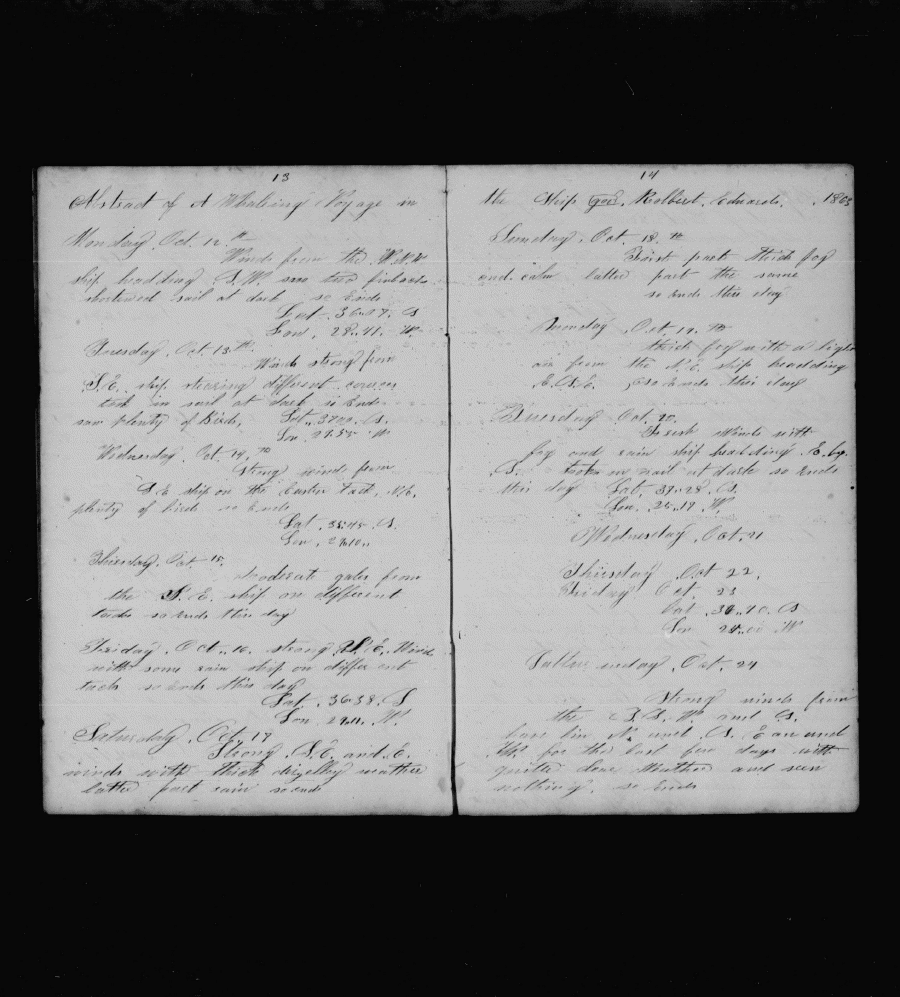 13
Abstract of A Whaleing Voyage in
Monday Oct. 12.th
Winds from the W.N.W
ship headding S.W. saw two finbacks
shortened sail at dark so Ends
Lat. 36..17. S
Lon. 28..41. W.
Tuesday, Oct. 13.th
Winds strong from
S.E. ship steering different
took in sail at dark so Ends
saw plenty of Birds, Lat. 37.00. S.
Lon. W
Wednesday. Oct. 14.th
Strong winds from
S.E. ship on the Easten tack. N.E.
plenty of birds so Ends
Lat. 35:45. S.
Lon.
Thursday. Oct. 15.
moderate gales from
the S.E. ship on different
tacks so ends this day
Friday, Oct. 16. strong S.E. Winds
with some rain ship on different
tacks so ends this day
Lat. 36.38. S
Lon. W.
Saturday, Oct. 17
Strong S.E. and E.
winds with thick drizelby weather
latter part rain so ends
14
the Ship Robbert. Edwards. 1863
Sunday, Oct. 18.th
First part thick fog
and calm latter part the same
so ends this day
Munday, Oct. 19.th
thick fog with a light
air from the N.E. ship headding
E.S.E. so ends this day
Tuesday Oct. 20.
Fresh Winds with
fog and rain ship headding E. by.
S. in sail at dark so ends
this day Lat. 37..28. S.
Lon. 25..17 W.
Wednesday, Oct. 21
Thursday, Oct 22.
Friday Oct. 23
Lat. S
Lon W
Oct. 24
Strong winds from
the S.S.W. and S.
N. until S.E. and
W. for the last few days with
quite Weather and seen
nothing. so Ends